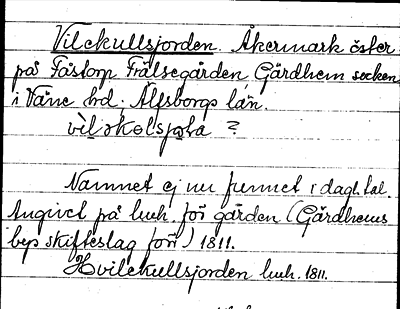 Vilekullsjorden. Åkermark öster
på Fåstorp Frälsegården, Gärdhem socken
i Väne hrd. Älfsborgs län.
vìləkolsjola ?
Namnet ej nu funnet i dagl. tal.
Angivet på lmh. för gården (Gärdhems
bys skifteslag förr) 1811.
Hvilekullsjorden lmh. 1811.